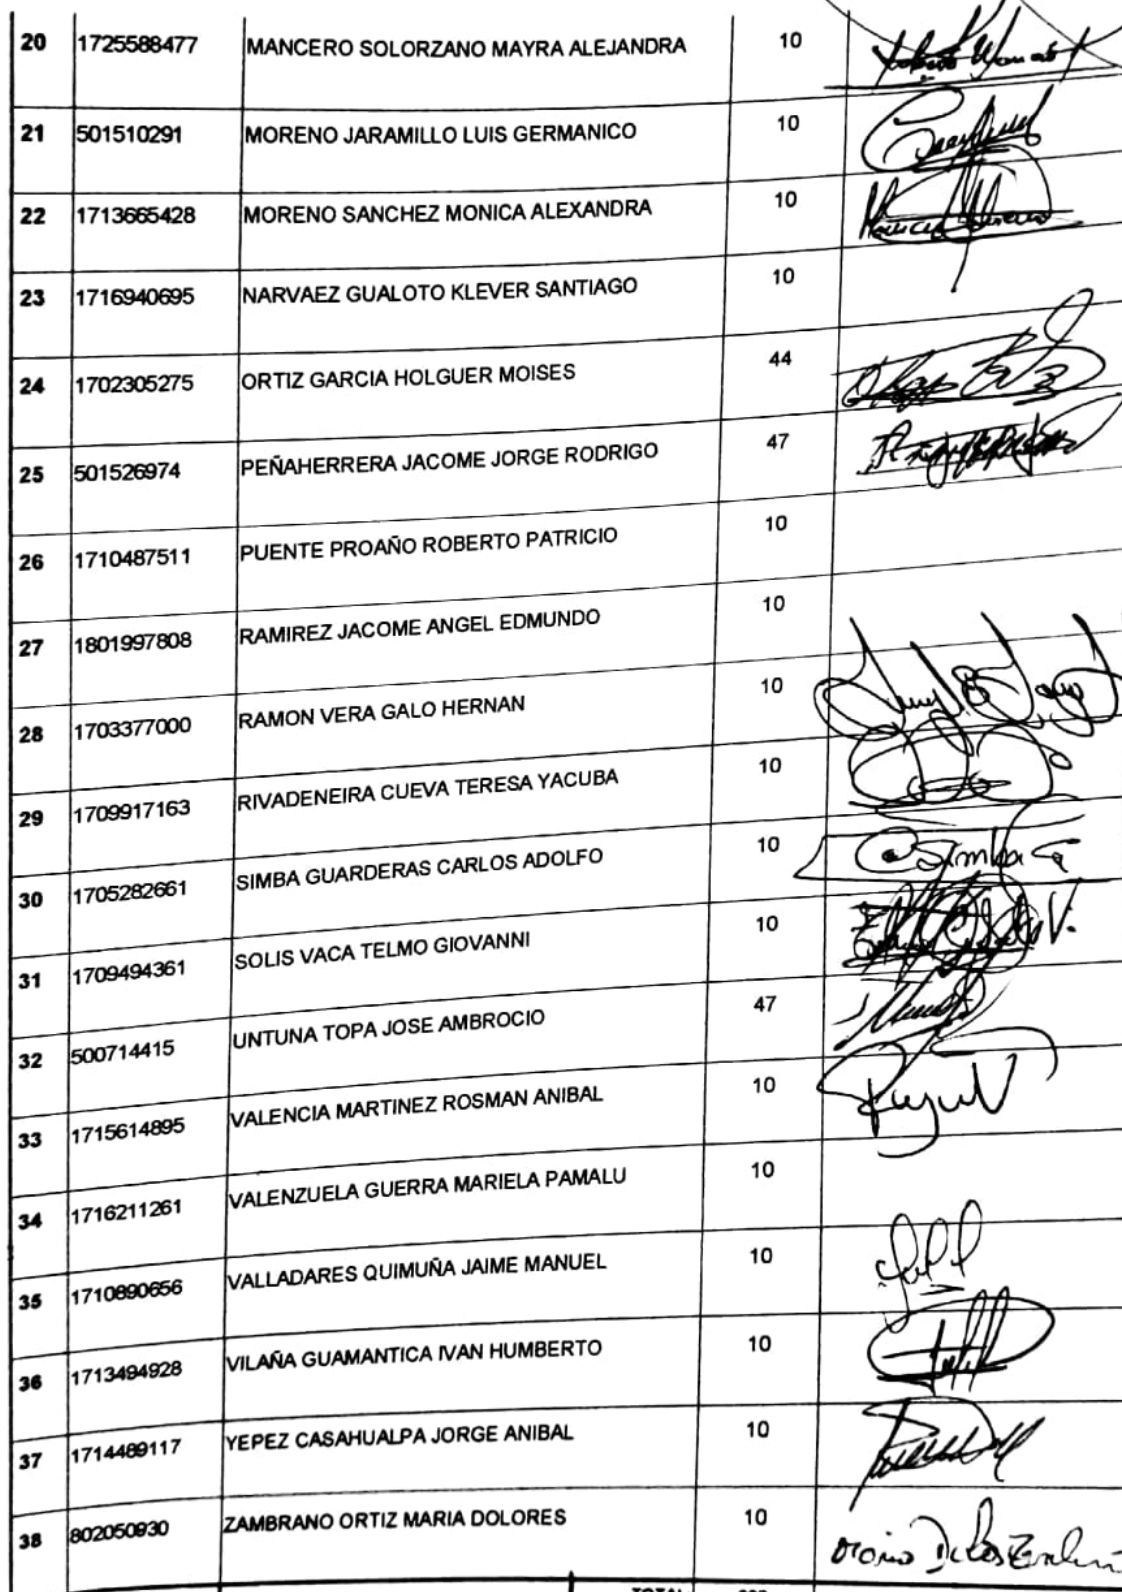 20 1725588477 MANCERO SOLORZANO MAYRA ALEJANDRA 10
21 501510291 MORENO JARAMILLO LUIS GERMANICO 10
22 1713665428 MORENO SANCHEZ MONICA ALEXANDRA 10
23 1716940695 NARVAEZ GUALOTO KLEVER SANTIAGO 10
24 1702305275 ORTIZ GARCIA HOLGUER MOISES 44
25 501526974 PEÑAHERRERA JACOME JORGE RODRIGO 47
26 1710487511 PUENTE PROAÑO ROBERTO PATRICIO 10
27 1801997808 RAMIREZ JACOME ANGEL EDMUNDO 10
28 1703377000 RAMON VERA GALO HERNAN 10
29 1709917163 RIVADENEIRA CUEVA TERESA YACUBA 10
30 1705282661 SIMBA GUARDERAS CARLOS ADOLFO 10 Simba G
31 1709494361 SOLIS VACA TELMO GIOVANNI 10
32 500714415 UNTUNA TOPA JOSE AMBROCIO 47
33 1715614895 VALENCIA MARTINEZ ROSMAN ANIBAL 10
34 1716211261 VALENZUELA GUERRA MARIELA PAMALU 10
35 1710890656 VALLADARES QUIMUÑA JAIME MANUEL 10
36 1713494928 VILAÑA GUAMANTICA IVAN HUMBERTO 10
37 1714489117 YEPEZ CASAHUALPA JORGE ANIBAL 10
38 802050930 ZAMBRANO ORTIZ MARIA DOLORES 10
TOTAL